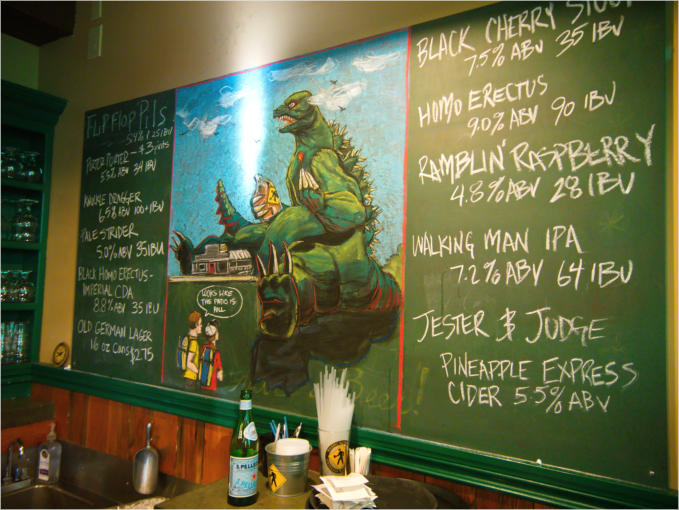 FLIP FLOP PILS
5.4% / 25 IBU
PORTER PORTER - $3 pints
5.5% ABV 34 IBU
KNUCKLE DRAGGER
6.5% ABV 100+ IBU
PALE STRIDER
5.0% ABV 35 IBU
BLACK HOMO ERECTUS-
IMPERIAL CDA
8.8% ABV 35 IBU
OLD GERMAN LAGER
16 oz Cans $2.75
LOOKS LIKE
THE PATIO IS
FULL
Beer!
BLACK CHERRY STOUT
7.5% ABV 35 IBU
HOMO ERECTUS
9.0% ABV 90 IBU
RAMBLIN' RASPBERRY
4.8% ABV 28 IBU
WALKING MAN IPA
7.2% ABV 64 IBU
JESTER & JUDGE
PINEAPPLE EXPRESS
CIDER 5.5% ABV
S.PELLEGRINO